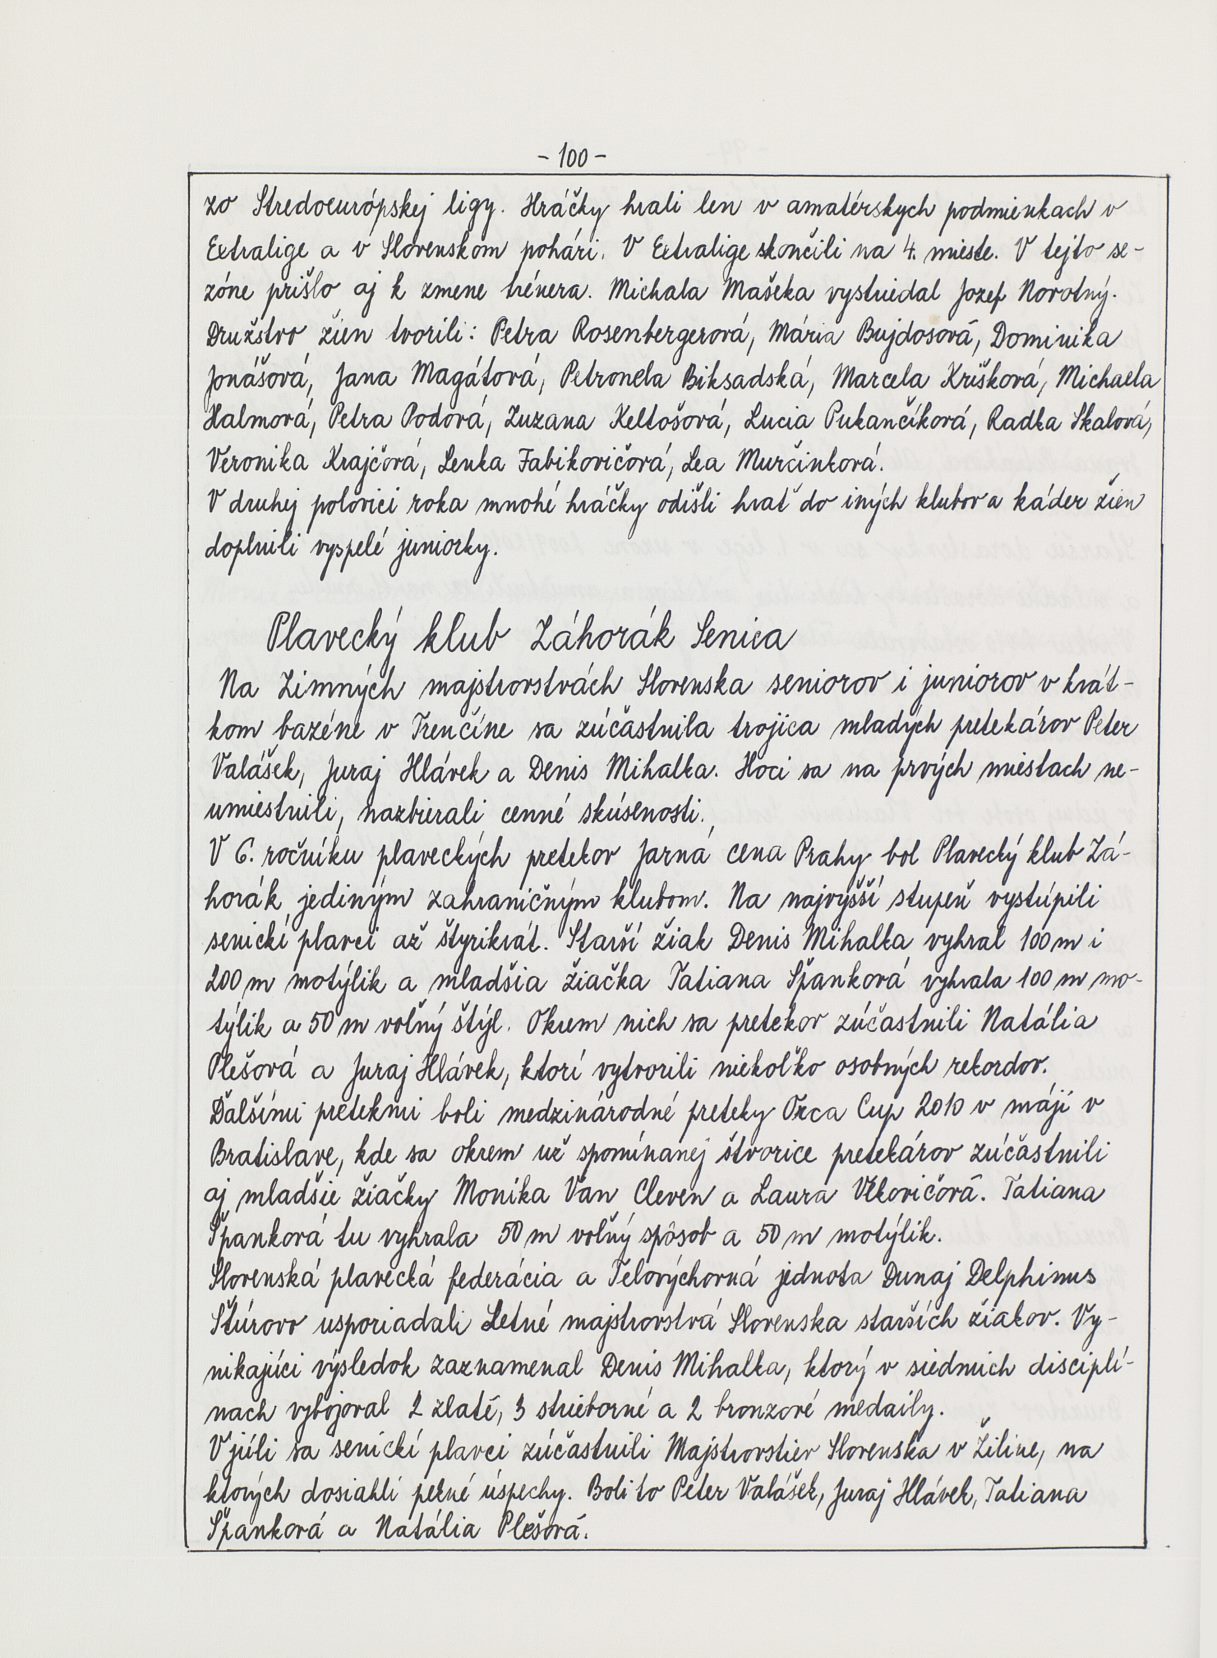 - 100 -
zo Stredoeurópskej ligy. Hráčky hrali len v amatérskych podmienkach v
Extralige a v Slovenskom pohári. V Extralige skončili na 4. mieste. V tejto se-
zóne prišlo aj k zmene trénera. Michala Mašeka vystriedal Jozef Novotný.
Družstvo žien tvorili: Petra Rosenbergerová, Mária Bujdosová, Dominika
Jonášová, Jana Magátová, Petronela Biksadská, Marcela Krišková, Michaela
Halmová, Petra Podová, Zuzana Keltošová, Lucia Pukančíková, Radka Skalová,
Veronika Krajčová, Lenka Fabikovičová, Lea Murčinková.
V druhej polovici roka mnohé hráčky odišli hrať do iných klubov a káder žien
doplnili vyspelé juniorky.
Plavecký klub Záhorák Senica
Na Zimných majstrovstvách Slovenska seniorov i juniorov v krát-
kom bazéne v Trenčíne sa zúčastnila trojica mladých pretekárov Peter
Valášek, Juraj Hlávek a Denis Mihalka. Hoci sa na prvých miestach ne-
umiestnili, nazbierali cenné skúsenosti.
V 6. ročníku plaveckých pretekov Jarná cena Prahy bol Plavecký klub Zá-
horák jediným zahraničným klubom. Na najvyšší stupeň vystúpili
senickí plavci až štyrikrát. Starší žiak Denis Mihalka vyhral 100 m i
200 m motýlik a mladšia žiačka Tatiana Španková vyhrala 100 m mo-
týlik a 50 m voľný štýl. Okrem nich sa pretekov zúčastnili Natália
Plešová a Juraj Hlávek, ktorí vytvorili niekoľko osobných rekordov.
Ďalšími pretekmi boli medzinárodné preteky Orca Cup 2010 v máji v
Bratislave, kde sa okrem už spomínanej štvorice pretekárov zúčastnili
aj mladšie žiačky Monika Van Cleven a Laura Vlkovičová. Tatiana
Španková tu vyhrala 50 m voľný spôsob a 50 m motýlik.
Slovenská plavecká federácia a Telovýchovná jednota Dunaj Delphinus
Štúrovo usporiadali Letné majstrovstvá Slovenska starších žiakov. Vy-
nikajúci výsledok zaznamenal Denis Mihalka, ktorý v siedmich disciplí-
nach vybojoval 2 zlaté, 3 strieborné a 2 bronzové medaily.
V júli sa senickí plavci zúčastnili Majstrovstiev Slovenska v Žiline, na
ktorých dosiahli pekné úspechy. Boli to Peter Valášek, Juraj Hlávek, Tatiana
Španková a Natália Plešová.